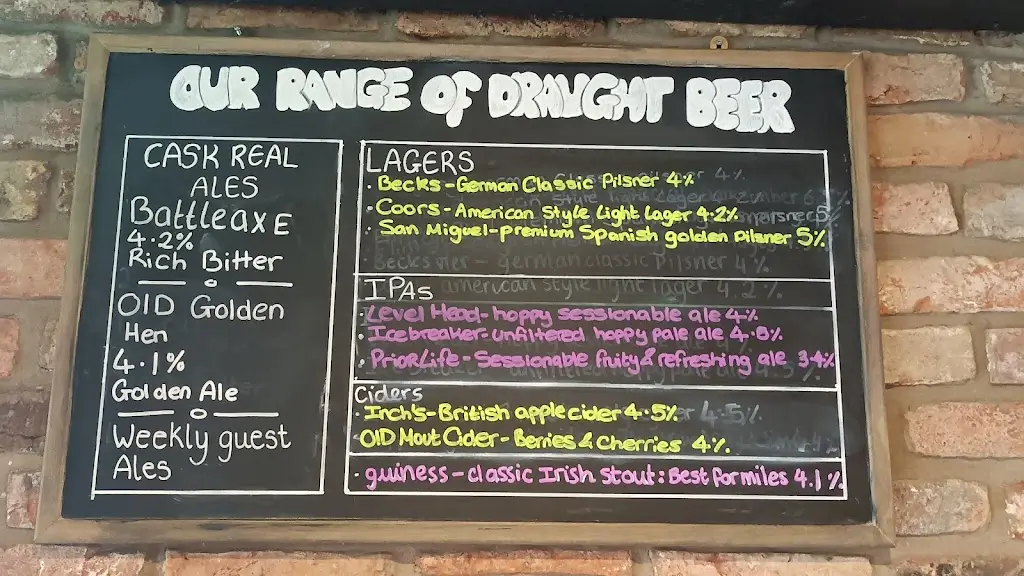 OUR RANGE OF DRAUGHT BEER
CASK REAL
ALES
Battleaxe
4.2%
Rich Bitter
Old Golden
Hen
4.1%
Golden Ale
Weekly guest
Ales
LAGERS
· Becks - German Classic Pilsner 4%
· Coors - American Style Light Lager 4.2%
· San Miguel - premium Spanish golden Pilsner 5%
IPAs
· Level Head - hoppy sessionable ale 4%
· Icebreaker - unfiltered hoppy pale ale 4.8%
· Prior Life - Sessionable fruity & refreshing ale 3.4%
Ciders
· Inch's - British apple cider 4.5%
· Old Mout Cider - Berries & Cherries 4%
· guiness - classic Irish Stout: Best for miles 4.1%